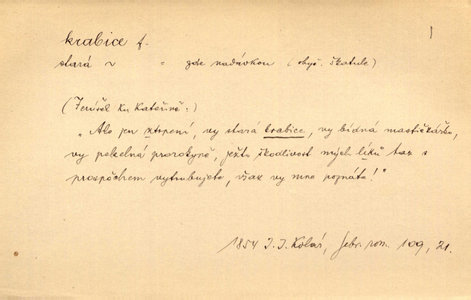 krabice f.
stará ~ " zde nadávkou (obyč. škatule)
(Ferišel ku Kateřině:)
"Ale jen strpení, vy stará krabice, vy bídná mastičkářko,
vy pekelná prorokyně, ježto škodlivost mých léků tak s
prospěchem vytrubujete, však vy mne poznáte!"
1854 J. J. Kolár, pom. 109, 21.